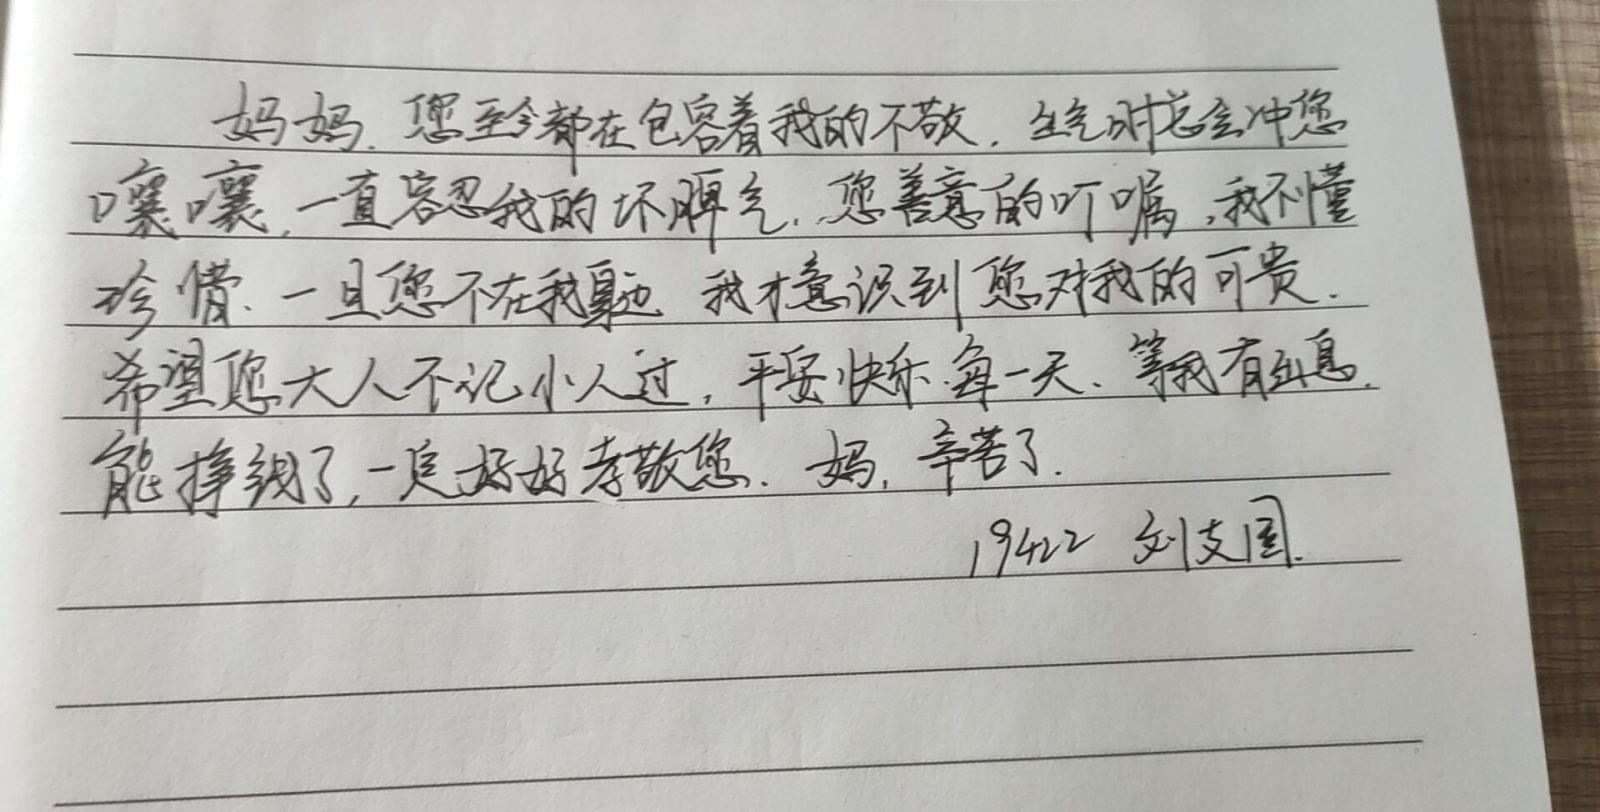 妈妈,您至今都在包容着我的不敬,生气时总会冲您
嚷嚷,一直容忍我的坏脾气,您善意的叮嘱,我不懂
珍惜、一旦您不在我身边 我才意识到您对我的可贵.
希望您大人不记小人过,平安快乐每一天、等我有出息,
能挣钱了,一定好好孝敬您、妈,辛苦了.
19422 刘支国.